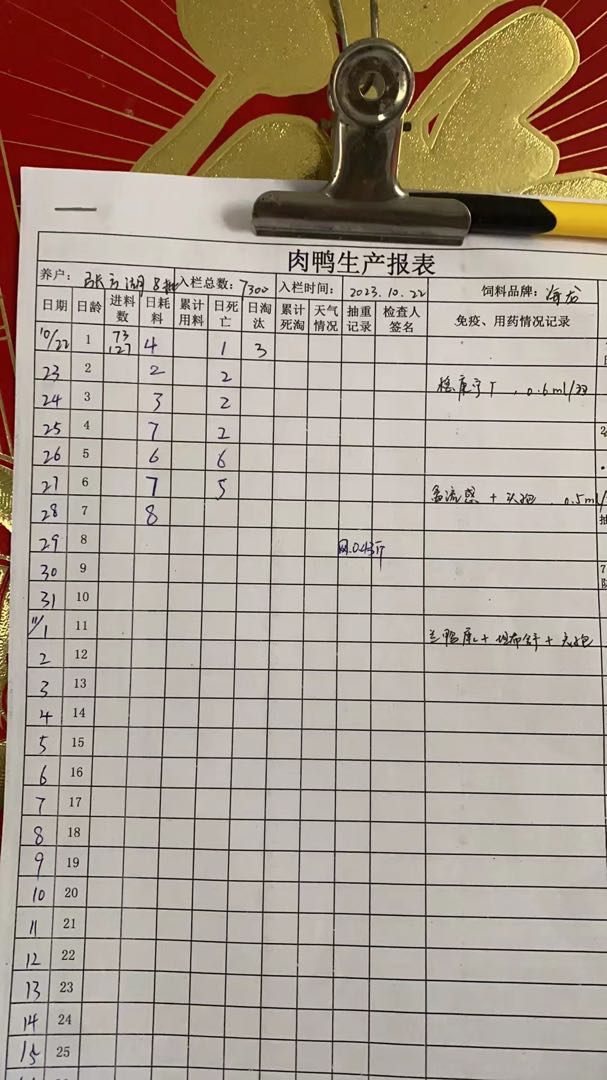 肉鸭生产报表
养户： 8批 入栏总数：7300 入栏时间：2023.10.22 饲料品牌：海龙
日期 日龄 进料数 日耗料 累计用料 日死亡 日淘汰 累计死淘 天气情况 抽重记录 检查人签名 免疫、用药情况记录
10/22 1 73 127 4 1 3
23 2 2 2 0.6ml/羽
24 3 3 2
25 4 7 2
26 5 6 6
27 6 7 5 禽流感 + 0.5ml/
28 7 8
29 8 0.43斤
30 9
31 10
11/1 11 + +
2 12
3 13
4 14
5 15
6 16
7 17
8 18
9 19
10 20
11 21
12 22
13 23
14 24
15 25